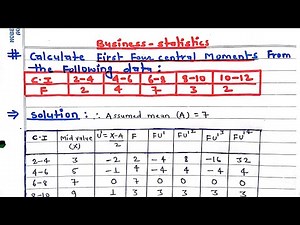 Business-statistics
# Calculate First Four central Moments From
the following data:
C.I 2-4 4-6 6-8 8-10 10-12
F 2 4 7 3 2
⇒ Solution: ∴ Assumed mean (A) = 7
C.I Mid value (X) U'=X-A/2 F FU' FU'² FU'³ FU'⁴
2-4 3 -2 2 -4 8 -16 32
4-6 5 -1 4 -4 4 -4 4
6-8 7 0 7 0 0 0 0
8-10 9 1 3 3 3 3 3